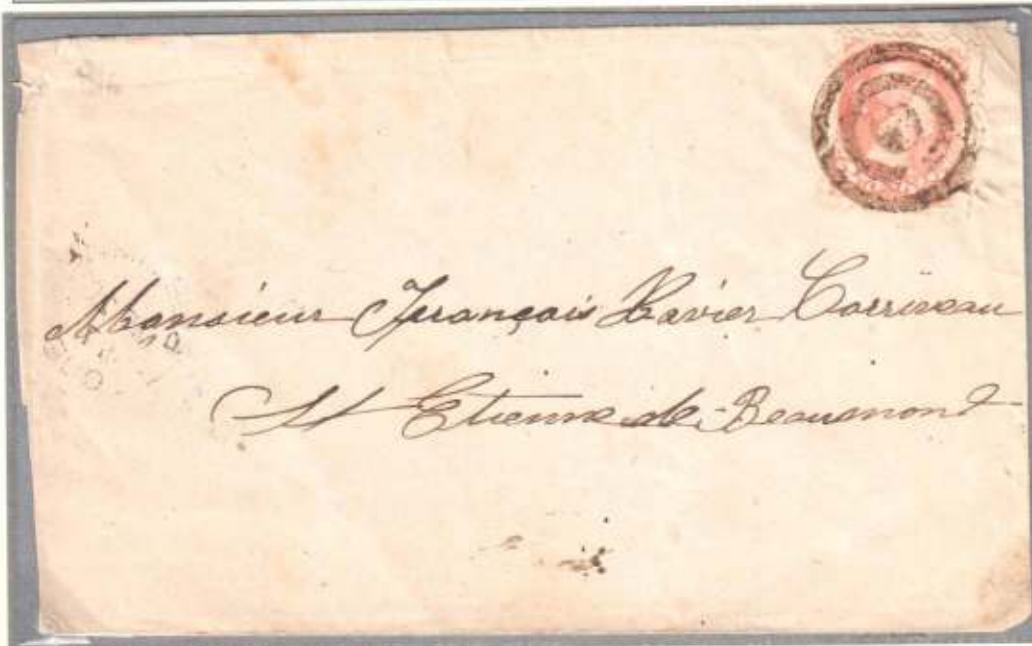 Monsieur François Xavier Corriveau
St Etienne de Beaumont